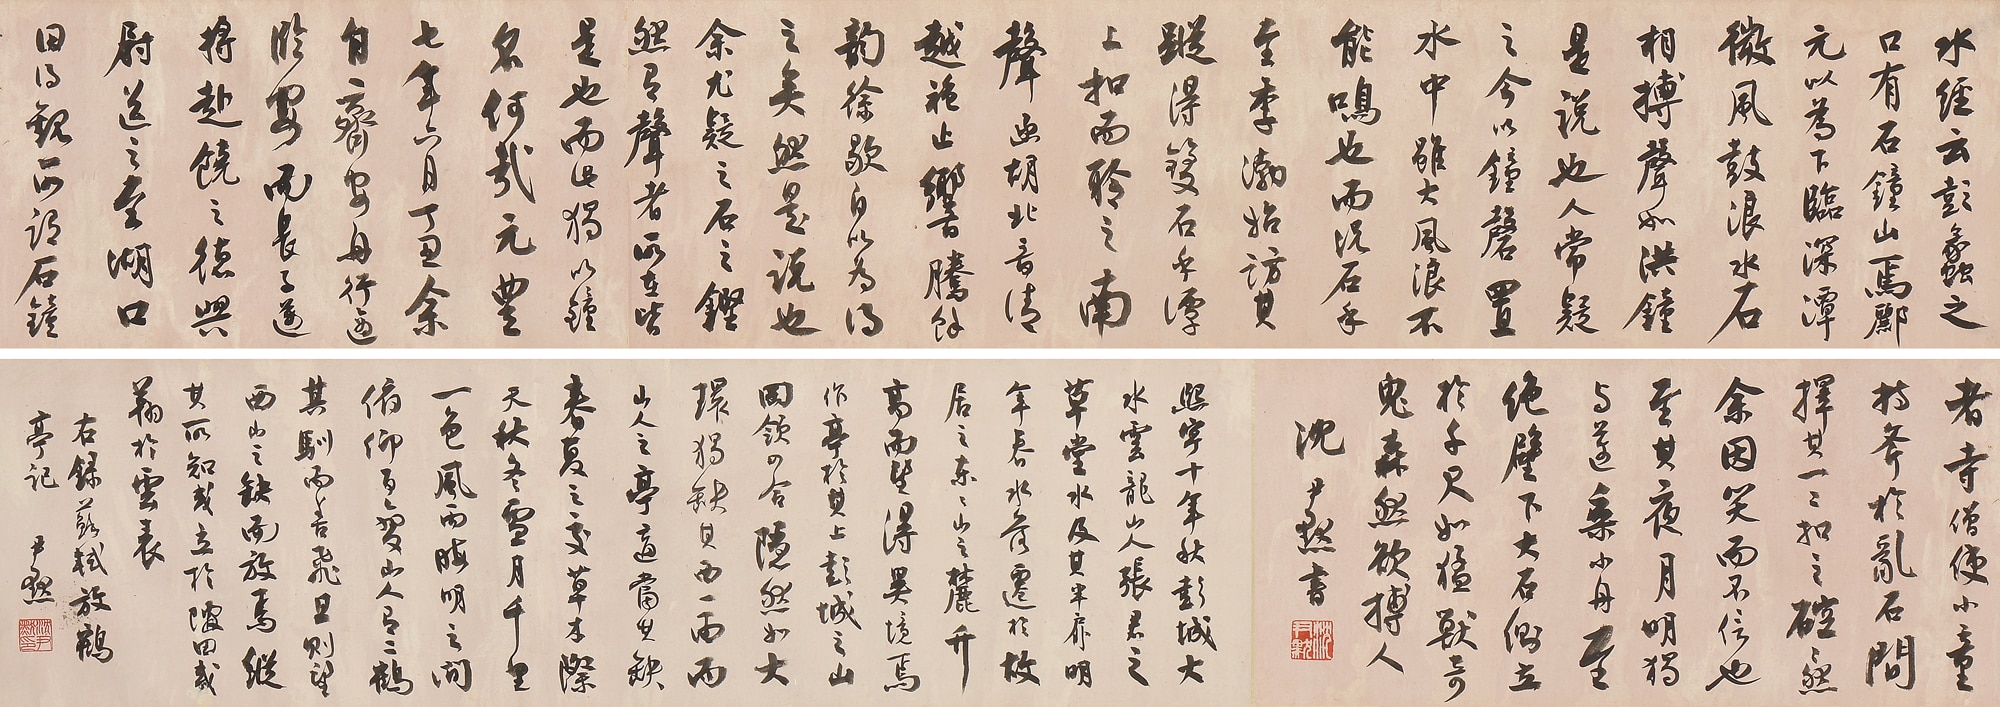 水經云彭蠡之
口有石鐘山焉酈
元以為下臨深潭
微風鼓浪水石
相搏聲如洪鐘
是說也人常疑
之今以鐘磬置
水中雖大風浪不
能鳴也而況石乎
至李渤始訪其
蹤得雙石於潭
上扣而聆之南
聲函胡北音清
越枹止響騰餘
韵徐歇自以為得
之矣然是說也
余尤疑之石之鏗
然有聲者所在皆
是也而此獨以鐘
名何哉元豐
七年六月丁丑余
自齊安舟行適
臨安而長子邁
將赴饒之德興
尉送之至湖口
因得觀所謂石鐘
者寺僧使小童
持斧於亂石間
擇其一二扣之硿硿然
余固笑而不信也
至其夜月明獨
與邁乘小舟至
絕壁下大石側立
於千尺如猛獸奇
鬼森然欲搏人
沈尹默書
熙寧十年秋彭城大
水雲龍山人張君之
草堂水及其半扉明
年春水落遷於故
居之東東山之麓升
高而望得異境焉
作亭於其上彭城之山
岡嶺四合隱然如大
環獨缺其西一面而
山人之亭適當其缺
春夏之交草木際
天秋冬雪月千里
一色風雨晦明之間
俯仰百變山人有二鶴
甚馴而善飛旦則望
西山之缺而放焉縱
其所如或立於陂田或
翔於雲表
右錄蘇軾放鶴
亭記 尹默